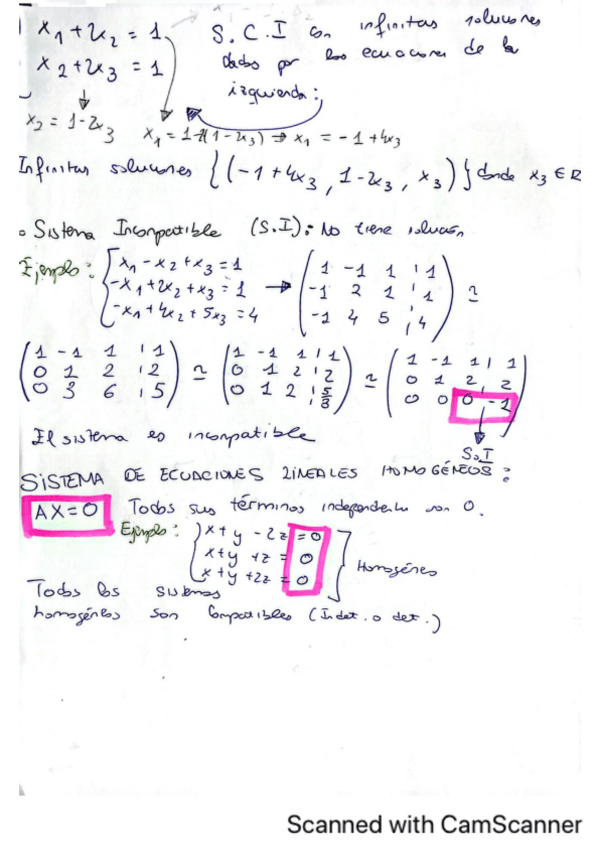 x₁ + 2x₂ = 1 S.C.I con infinitas soluciones
x₂ + 2x₃ = 1 dadas por las ecuaciones de la
izquierda:
x₂ = 1-2x₃ x₁ = 1-2(1-2x₃) ⇒ x₁ = -1 + 4x₃
Infinitas soluciones {(-1+4x₃, 1-2x₃, x₃)} donde x₃ ∈ R
• Sistema Incompatible (S.I): No tiene solución
Ejemplo: { x₁ - x₂ + x₃ = 1 ( 1 -1 1 ¦ 1
-x₁ + 2x₂ + x₃ = 1 → -1 2 1 ¦ 1 ≃
-x₁ + 4x₂ + 5x₃ = 4 -1 4 5 ¦ 4 )
( 1 -1 1 ¦ 1 ( 1 -1 1 ¦ 1 ( 1 -1 1 ¦ 1
0 1 2 ¦ 2 ≃ 0 1 2 ¦ 2 ≃ 0 1 2 ¦ 2
0 3 6 ¦ 5 ) 0 1 2 ¦ 5/3 ) 0 0 0 -1 )
El sistema es incompatible S.I
SISTEMA DE ECUACIONES LINEALES HOMOGÉNEOS:
AX=0 Todos sus términos independente son 0.
Ejemplo: { x + y - 2z = 0
x + y + z = 0 ] Homogéneo
x + y + 2z = 0
Todos los sistemas
homogéneos son Compatibles (Indet. o det.)
Scanned with CamScanner